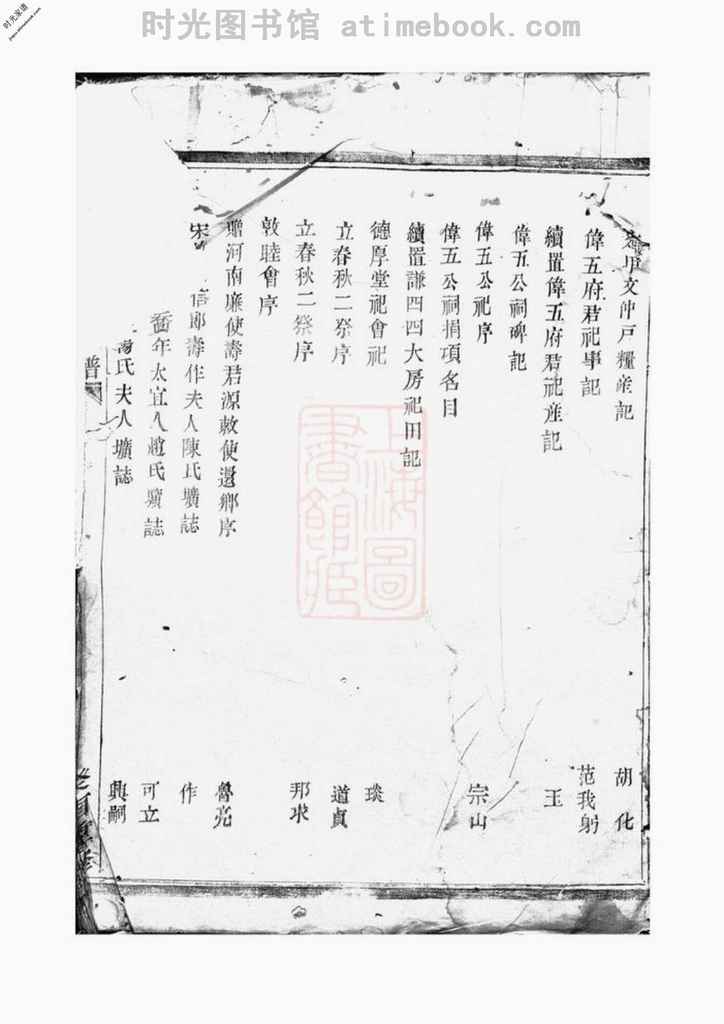 时光图书馆 atimebook.com
时光家谱
文仲戸糧產記 胡化
偉五府君祀事記 范我躬
續置偉五府君祀產記 王
偉五公祠碑記
偉五公祀序 宗山
偉五公祠捐項名目
續置謙四四大房祀田記
德厚堂祀會祀 琰
立春秋二祭序 道貞
立春秋二祭序 邦求
敦睦會序
贈河南廉使壽君源敕使還鄉序 魯亮
宋 郎壽作夫人陳氏壙誌 作
年太宜人趙氏壙誌 可立
氏夫人壙誌 興嗣
譜
上海圖書館藏